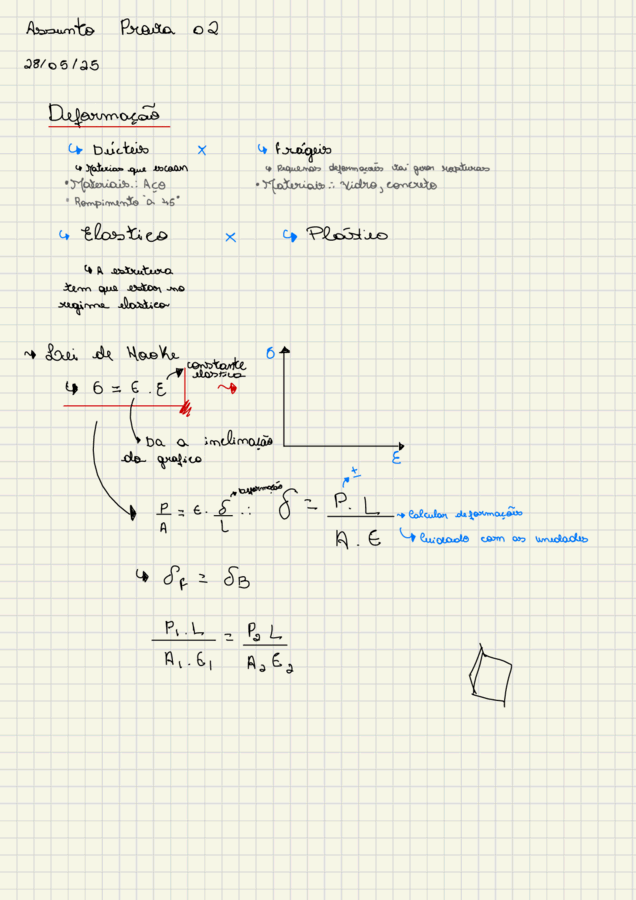 Assunto Prova 02
28/05/25
Deformação
↳ Dúcteis × ↳ Frágeis
↳ Materiais que escoam
↳ Pequenas deformações vai gerar rupturas
• Materiais: Aço
• Materiais: Vidro, concreto
• Rompimento a 45°
↳ Elastico × ↳ Plástico
↳ A estrutura
tem que estar no
regime elastico
Lei de Hooke
constante
elastica
↳ σ = E . ε
σ
ε
Da a inclinação
do grafico
deformação
P/A = E . δ/L ∴ δ = P. L / A. E
±
→ Calcular deformações
↳ Cuidado com as unidades
↳ δF = δB
P₁. L / A₁. E₁ = P₂ L / A₂ E₂